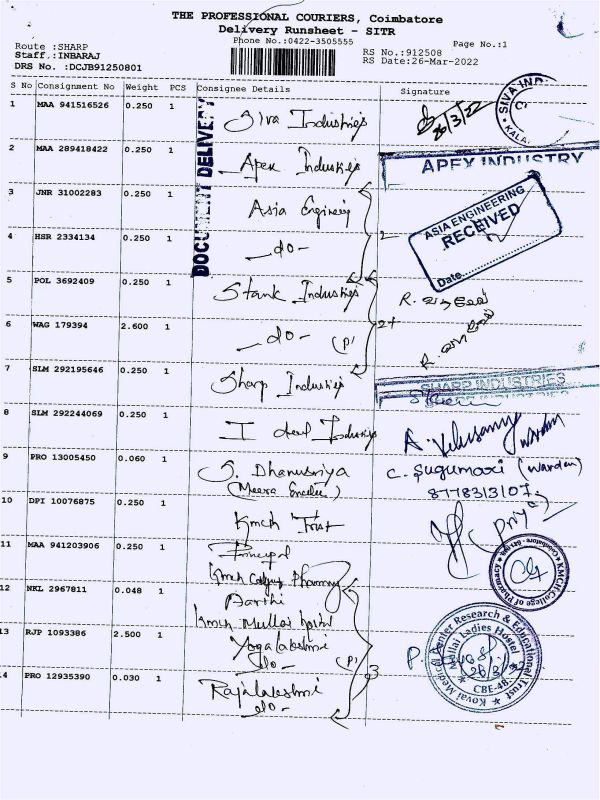 THE PROFESSIONAL COURIERS, Coimbatore
Delivery Runsheet - SITR
Phone No.:0422-3505555
Page No.:1
Route :SHARP
RS No.:912508
Staff.:INBARAJ
RS Date:26-Mar-2022
DRS No. :DCJB91250801
S No Consignment No Weight PCS Consignee Details Signature
DOCUMENT DELIVERY
1 MAA 941516526 0.250 1 Siva Industries 26/3/22
SIVA IND
2 MAA 289418422 0.250 1 Apex Industries
APEX INDUSTRY
3 JNR 31002283 0.250 1 Asia Engineering
ASIA ENGINEERING
RECEIVED
Date
4 HSR 2334134 0.250 1 -do-
5 POL 3692409 0.250 1 Stank Industries R.
6 WAG 179394 2.600 1 -do- (P) R.
7 SLM 292195646 0.250 1 Sharp Industries
SHARP INDUSTRIES
8 SLM 292244069 0.250 1 Ideal Industries A. Velusamy
9 PRO 13005450 0.060 1 S. Dhanusriya C. Sugumari (Warden)
(Meera) 8778313107
10 DPI 10076875 0.250 1 Kmch Trust Priya
11 MAA 941203906 0.250 1 Principal
Kmch College Pharmacy
KMCH College of Pharmacy Coimbatore
12 NKL 2967811 0.048 1 Aarthi
Kmch Mullai hostel
13 RJP 1093386 2.500 1 Yogalakshmi
-do- (P) 3
Kovai Medical Center Research & Educational Trust
Mullai Ladies Hostel
CBE-48.
14 PRO 12935390 0.030 1 Rajalakshmi
-do-